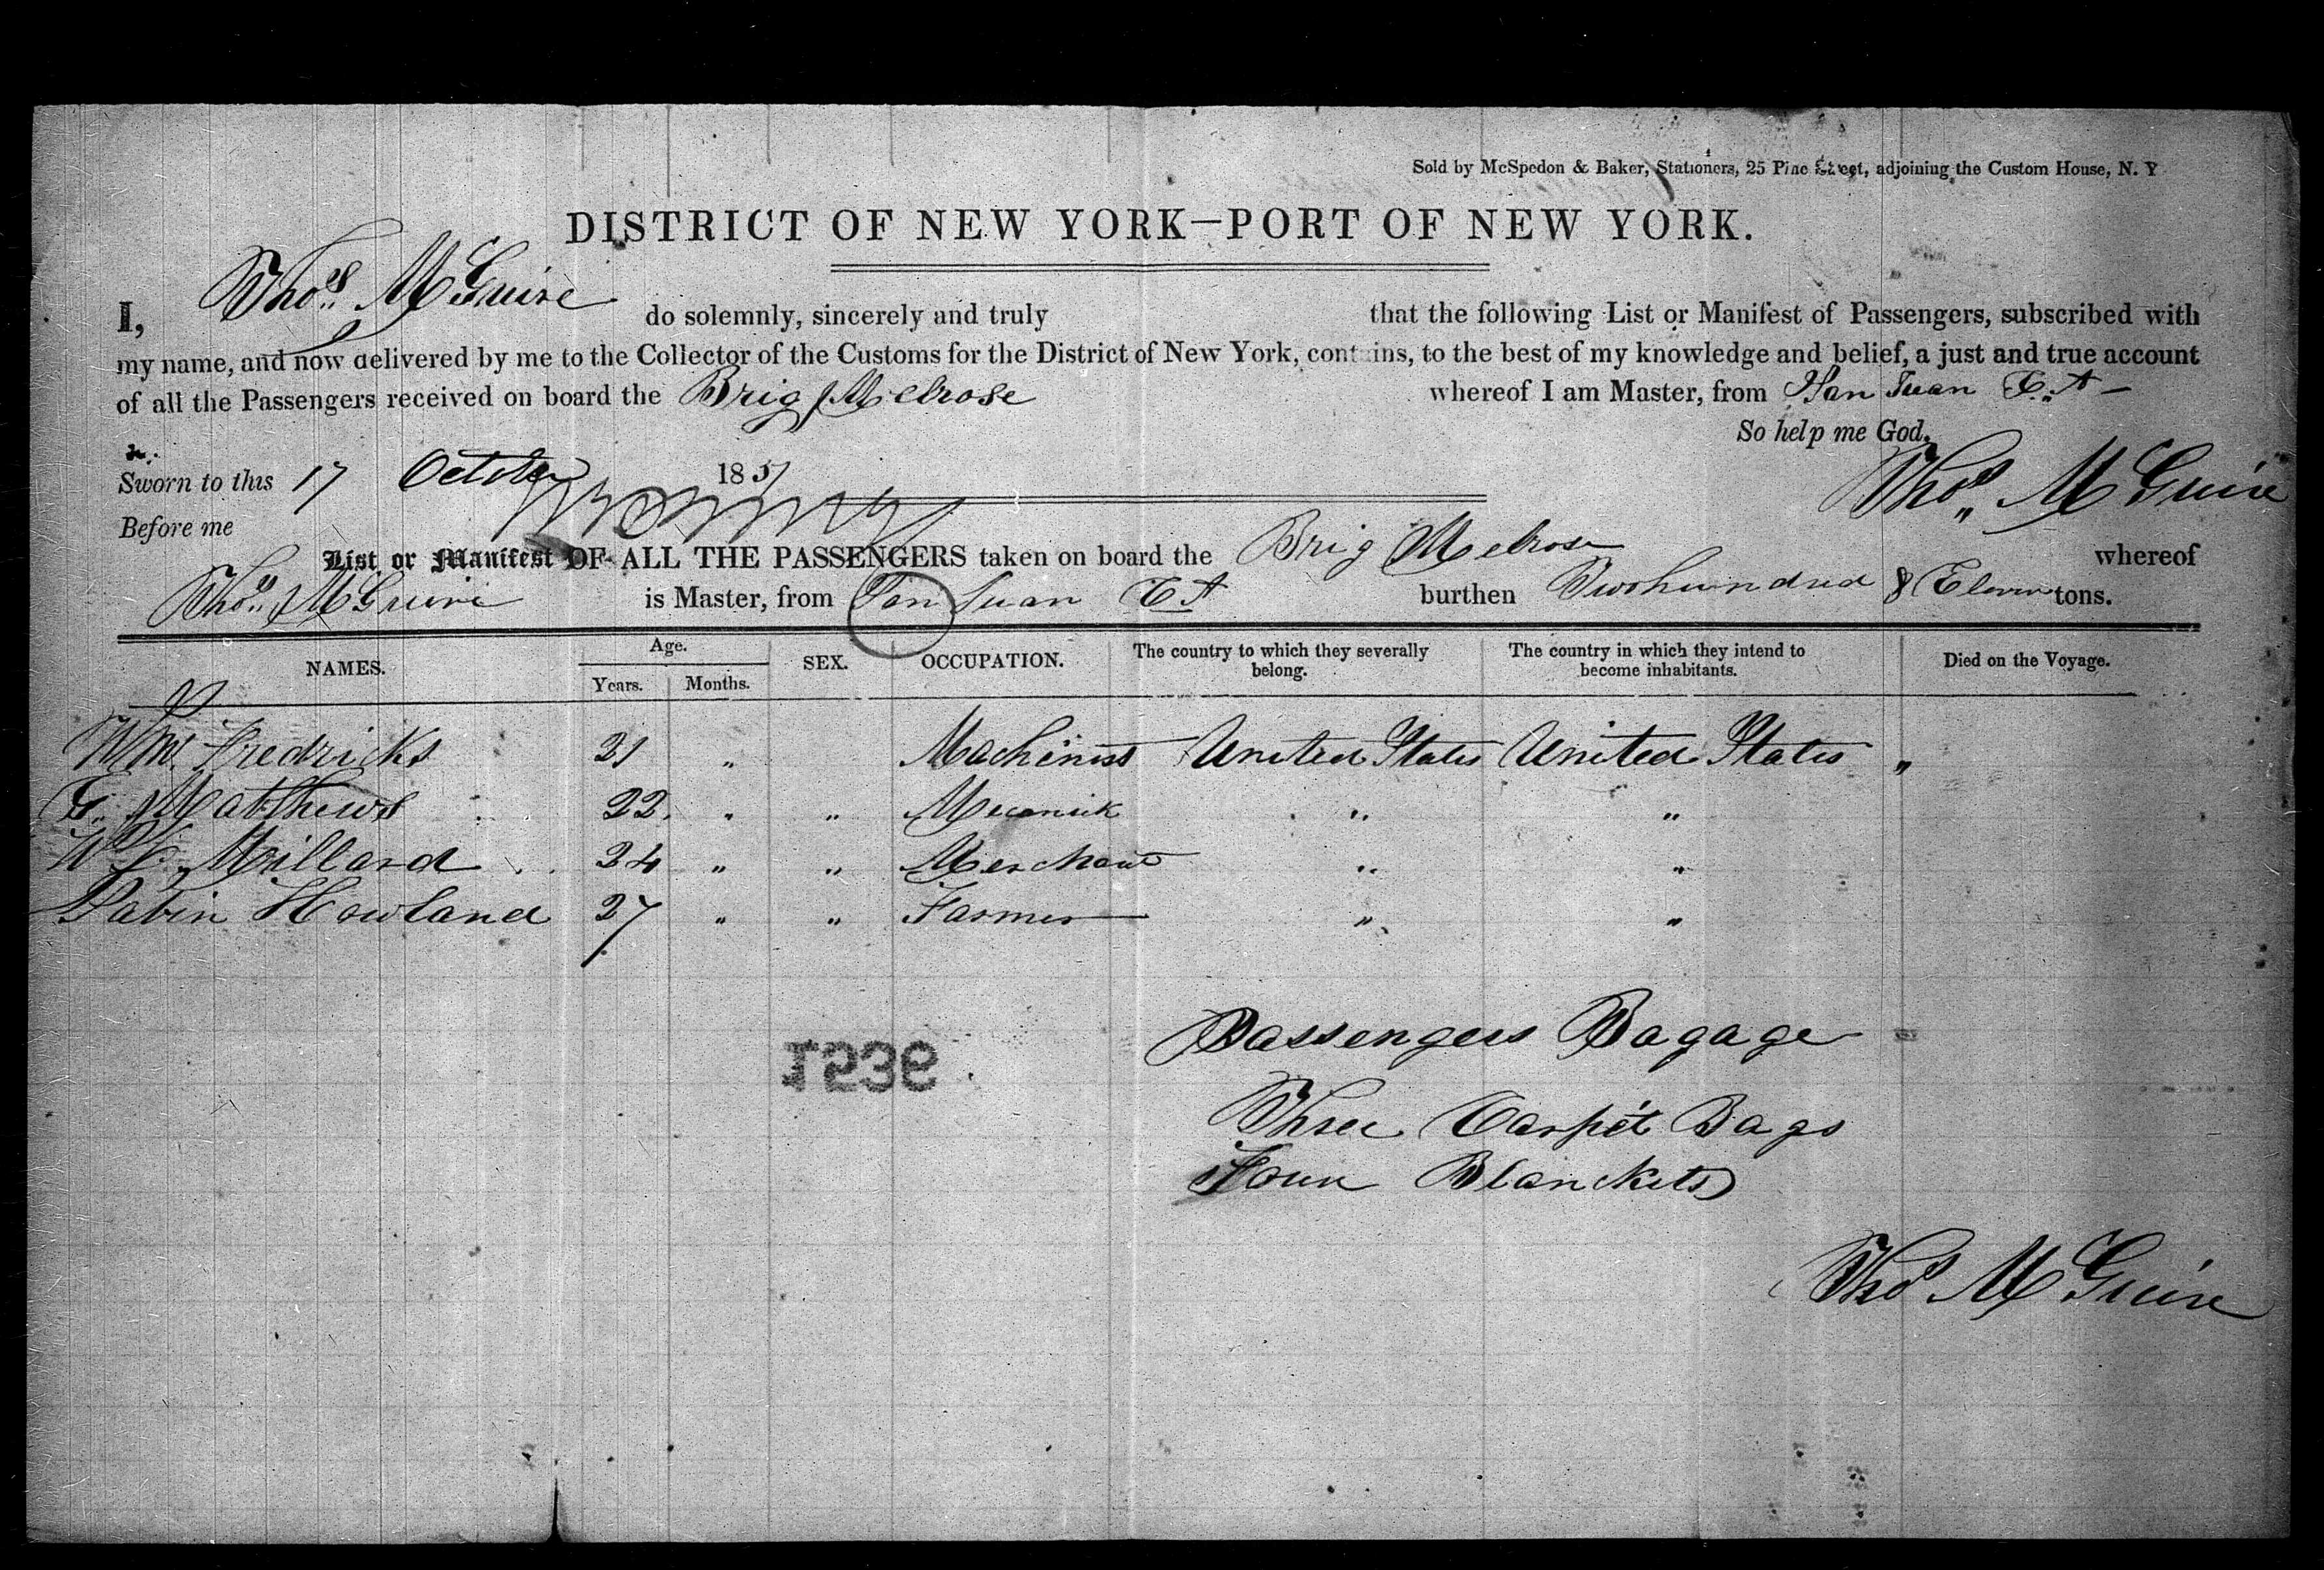 Sold by McSpedon & Baker, Stationers, 25 Pine Street, adjoining the Custom House, N. Y
DISTRICT OF NEW YORK—PORT OF NEW YORK.
I, Thos McGuire do solemnly, sincerely and truly that the following List or Manifest of Passengers, subscribed with
my name, and now delivered by me to the Collector of the Customs for the District of New York, contains, to the best of my knowledge and belief, a just and true account
of all the Passengers received on board the Brig Melrose whereof I am Master, from San Juan C.A
So help me God.
Sworn to this 17 October 1851 Thos McGuire
Before me
List or Manifest OF ALL THE PASSENGERS taken on board the Brig Melrose whereof
Thos McGuire is Master, from San Juan C A burthen Twohundred & Eleven tons.
NAMES. Age. Years. Months. SEX. OCCUPATION. The country to which they severally belong. The country in which they intend to become inhabitants. Died on the Voyage.
Wm Fredricks 21 " Machinist United States United States "
G. Matthews 22 " " Mecanick " "
Millard 24 " " Merchant " "
Sabin Howland 27 " " Farmer " "
Passengers Bagage
1536
Three Carpet Bags
Four Blanckets
Thos McGuire